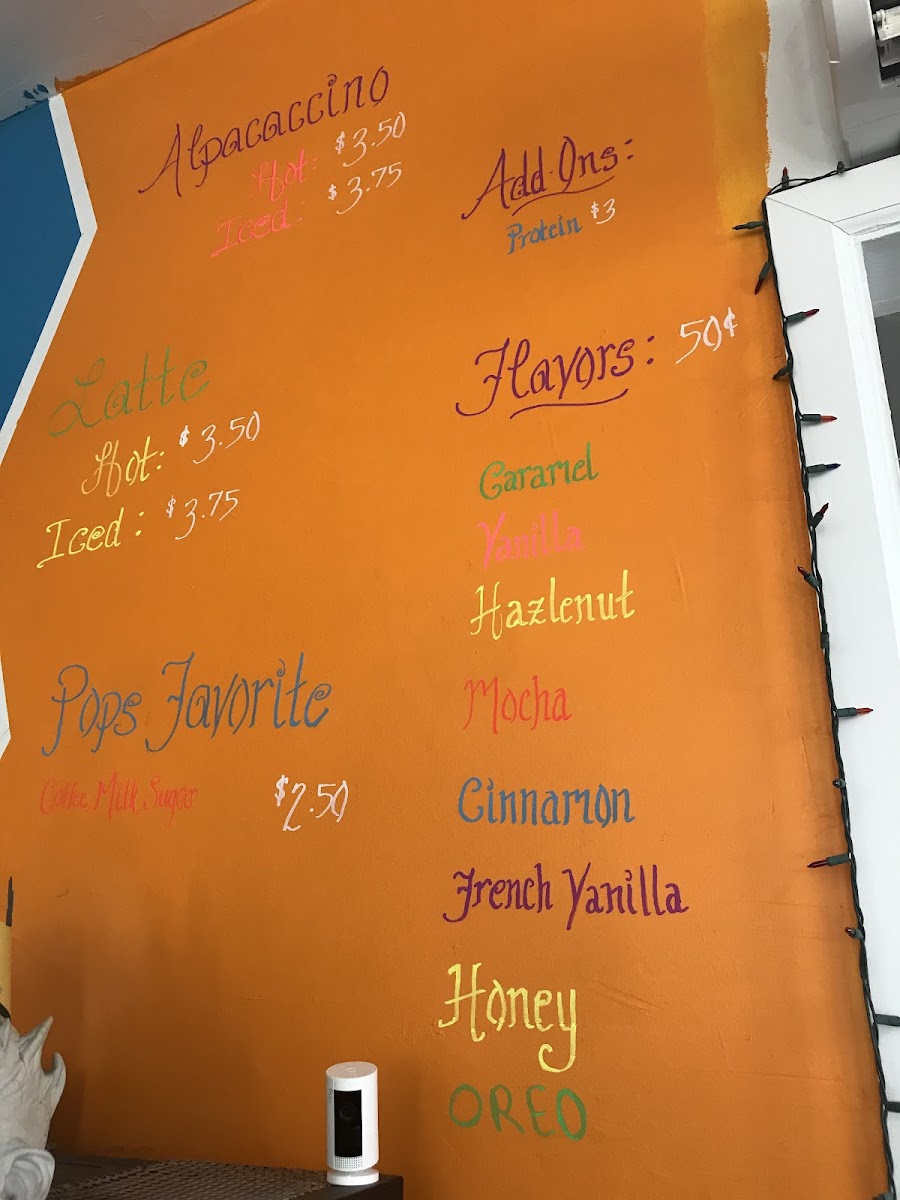 Alpacaccino
Hot: $3.50
Iced: $3.75
Latte
Hot: $3.50
Iced: $3.75
Pops Favorite
Coffee, Milk, Sugar $2.50
Add-Ons:
Protein $3
Flavors: 50¢
Caramel
Vanilla
Hazlenut
Mocha
Cinnamon
French Vanilla
Honey
OREO